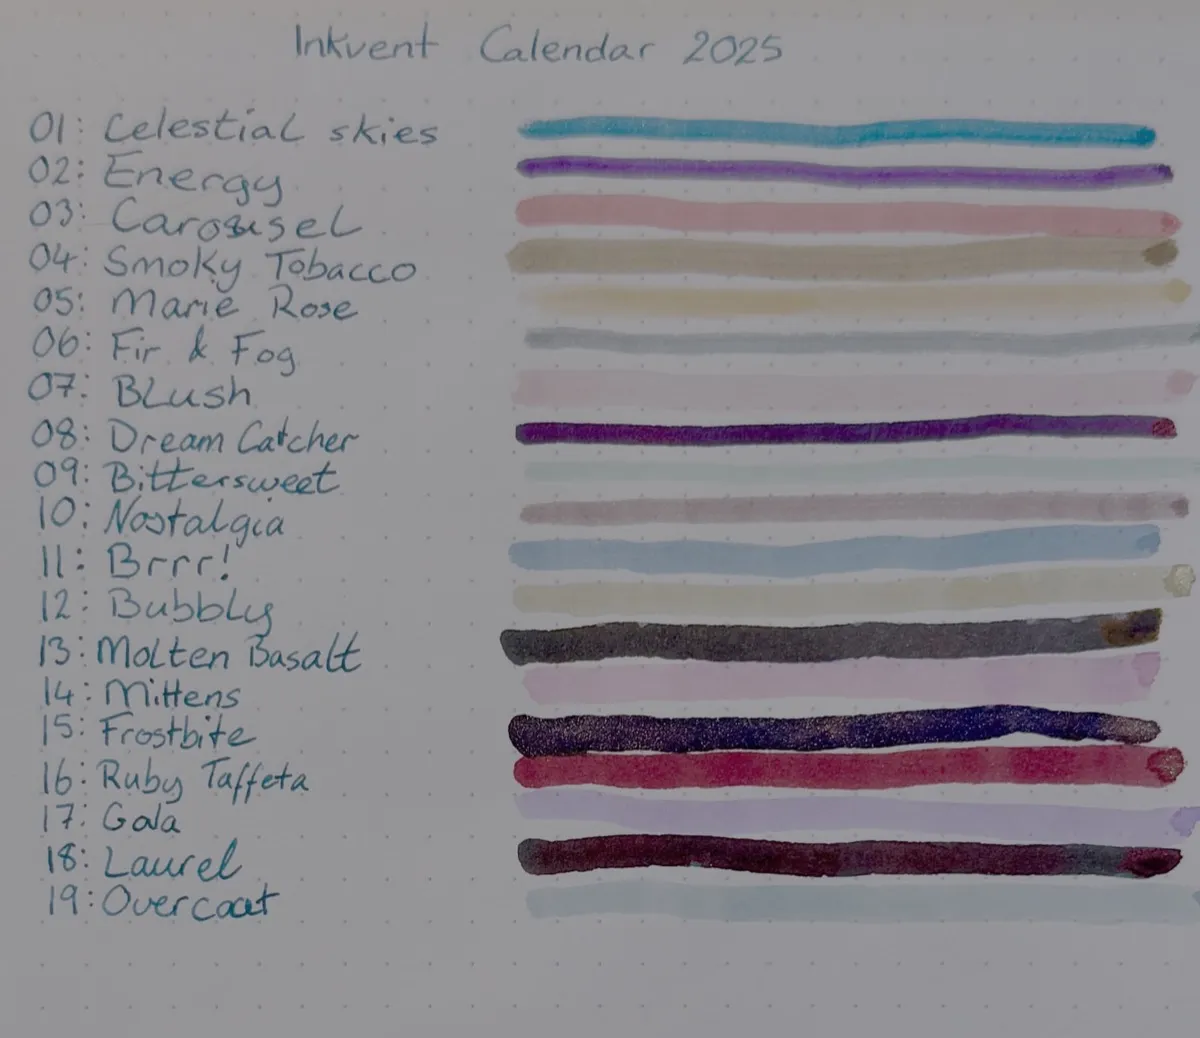 Inkvent Calendar 2025
01: Celestial skies
02: Energy
03: Carousel
04: Smoky Tobacco
05: Marie Rose
06: Fir & Fog
07: Blush
08: Dream Catcher
09: Bittersweet
10: Nostalgia
11: Brrr!
12: Bubbly
13: Molten Basalt
14: Mittens
15: Frostbite
16: Ruby Taffeta
17: Gala
18: Laurel
19: Overcoat